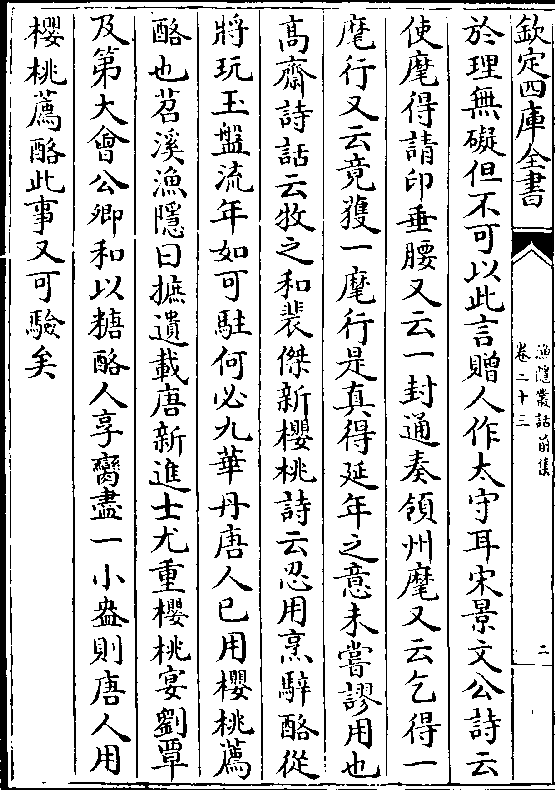 欽定四庫全書
漁隱叢話前集
卷二十三
二
於理無礙但不可以此言贈人作太守耳宋景文公詩云
使麾得請印垂腰又云一封通奏領州麾又云乞得一
麾行又云竟獲一麾行是真得延年之意未嘗謬用也
高齋詩話云牧之和裴傑新櫻桃詩云忍用烹騂酪從
將玩玉盤流年如可駐何必九華丹唐人已用櫻桃薦
酪也苕溪漁隱曰摭遺載唐新進士尤重櫻桃宴劉覃
及第大會公卿和以糖酪人享蠻盡一小盎則唐人用
櫻桃薦酪此事又可驗矣